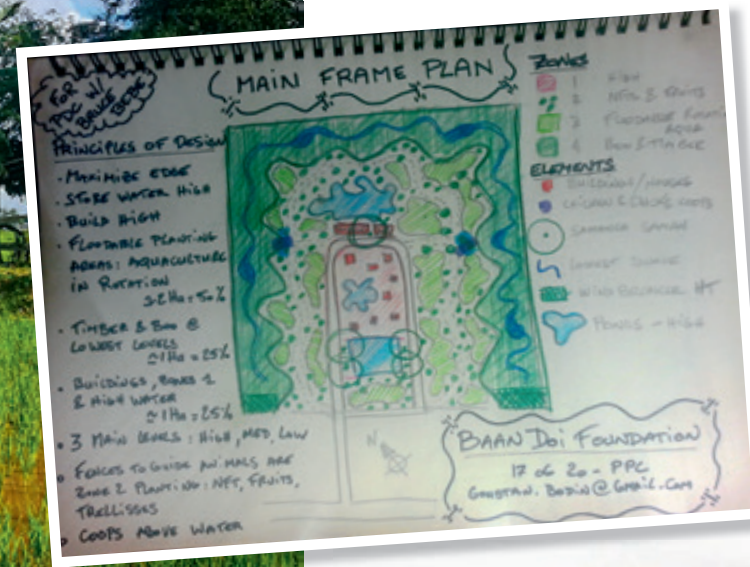 FOR
PDC W/
MAIN FRAME PLAN
PRINCIPLES OF DESIGN
• MAXIMIZE EDGE
• STORE WATER HIGH
• BUILD HIGH
• FLOODABLE PLANTING
AREAS: AQUACULTURE
IN ROTATION
≥2Ha = 50%
• TIMBER & BOO @
LOWEST LEVELS
≃1Ha = 25%
• BUILDINGS, ZONES 1
& HIGH WATER
≃1Ha = 25%
• 3 MAIN LEVELS: HIGH, MED, LOW
• FENCES TO GUIDE ANIMALS ARE
ZONE 2 PLANTING: NFT, FRUITS,
TRELLISSES
• COOPS ABOVE WATER
N
ZONES
1 HIGH
2 NFTS & FRUITS
3 FLOODABLE
4 BOO & TIMBER
ELEMENTS
BUILDINGS/HOUSES
CHICKEN & DUCKS COOPS
LOWEST
WIND BREAKER
PONDS - HIGH
BAAN DOI FOUNDATION
17 06 20 - PPC